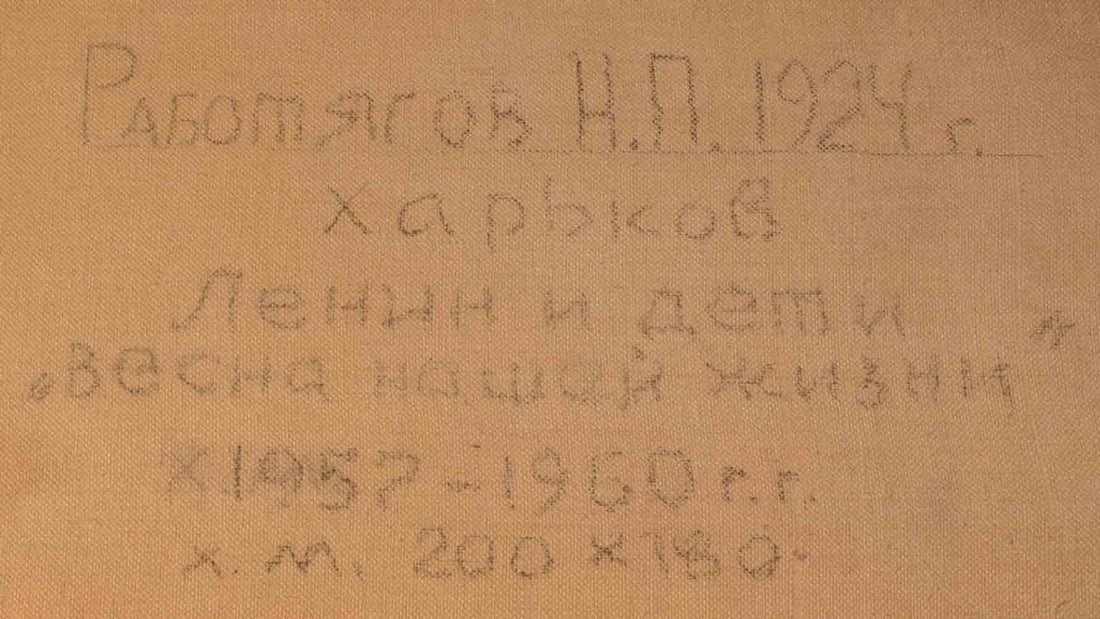 Работягов Н.П. 1924 г.
Харьков
Ленин и дети
„Весна нашей жизни"
х.1957-1960 г.г.
х.м. 200 х 180.